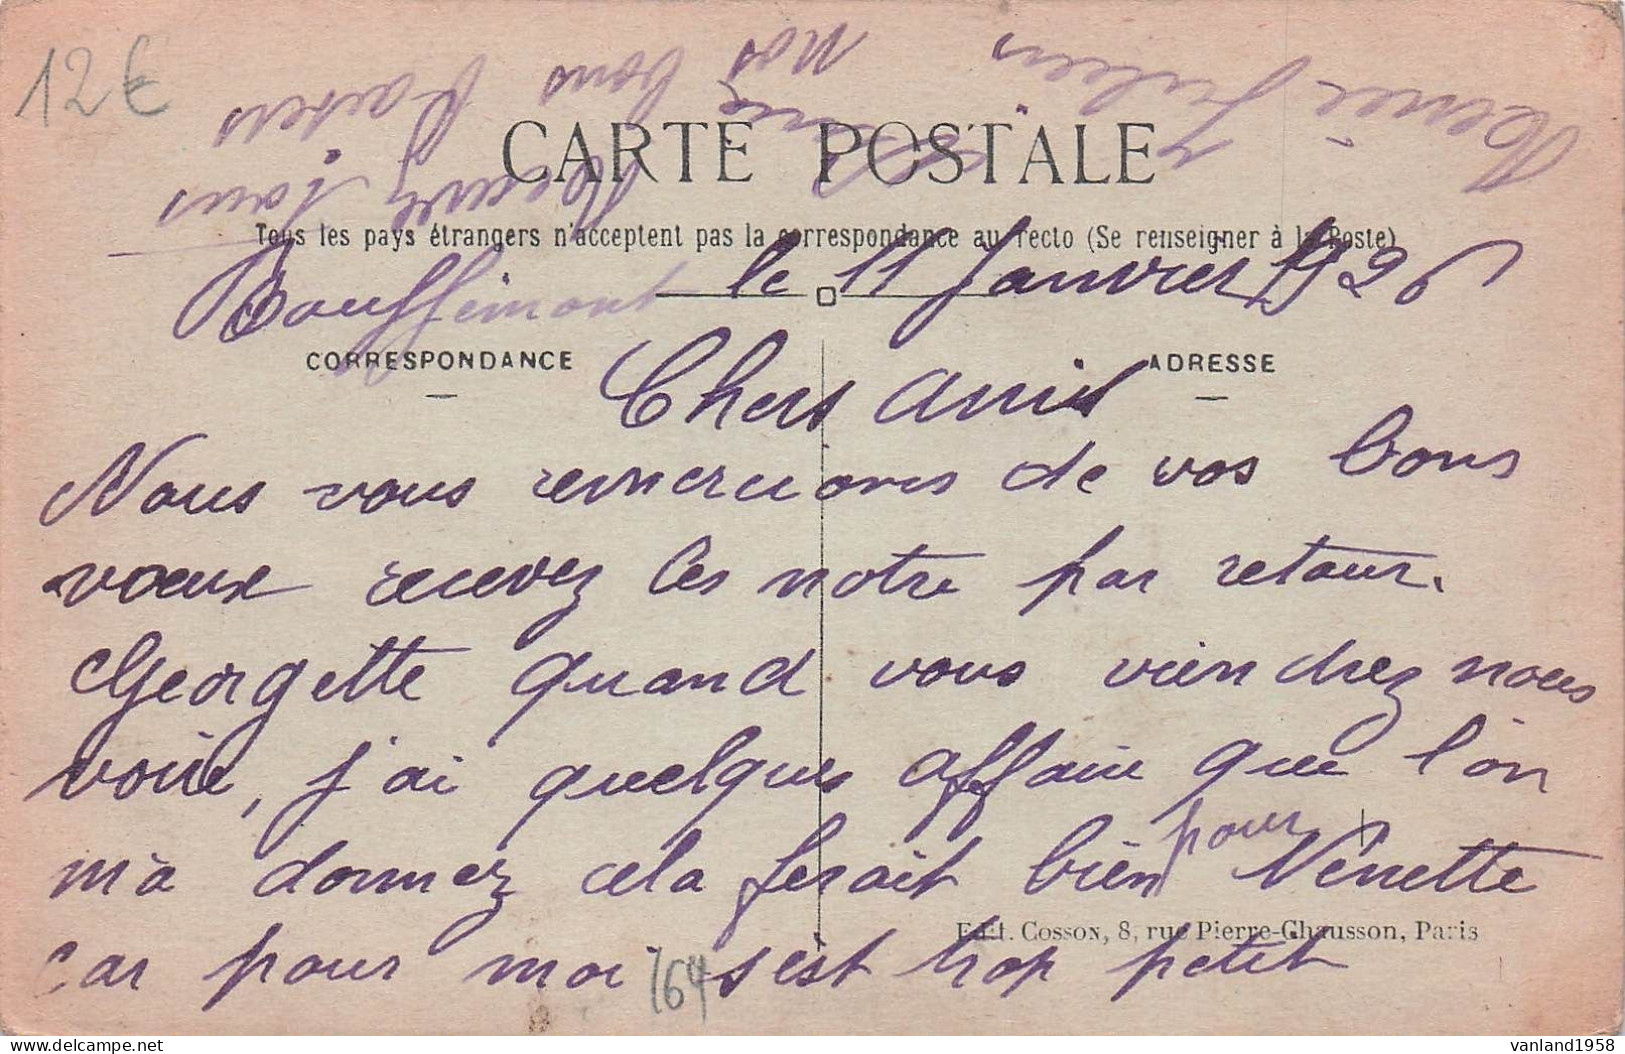 12€
CARTE POSTALE
Tous les pays étrangers n'acceptent pas la correspondance au recto (Se renseigner à la Poste)
Bouffémont le 11 Janvier 1926
CORRESPONDANCE
ADRESSE
Chers Amis
Nous vous remercions de vos bons
voeux recevez les notre par retour.
Georgette quand vous viendrez nous
voire, j'ai quelques affaire que l'on
m'a donnez cela ferait bien pour Nénette
car pour moi s'est trop petit
Edit. Cosson, 8, rue Pierre-Chausson, Paris
164
Recevez tous
nos bons Baisers
Julien
vanland1958
delcampe.net